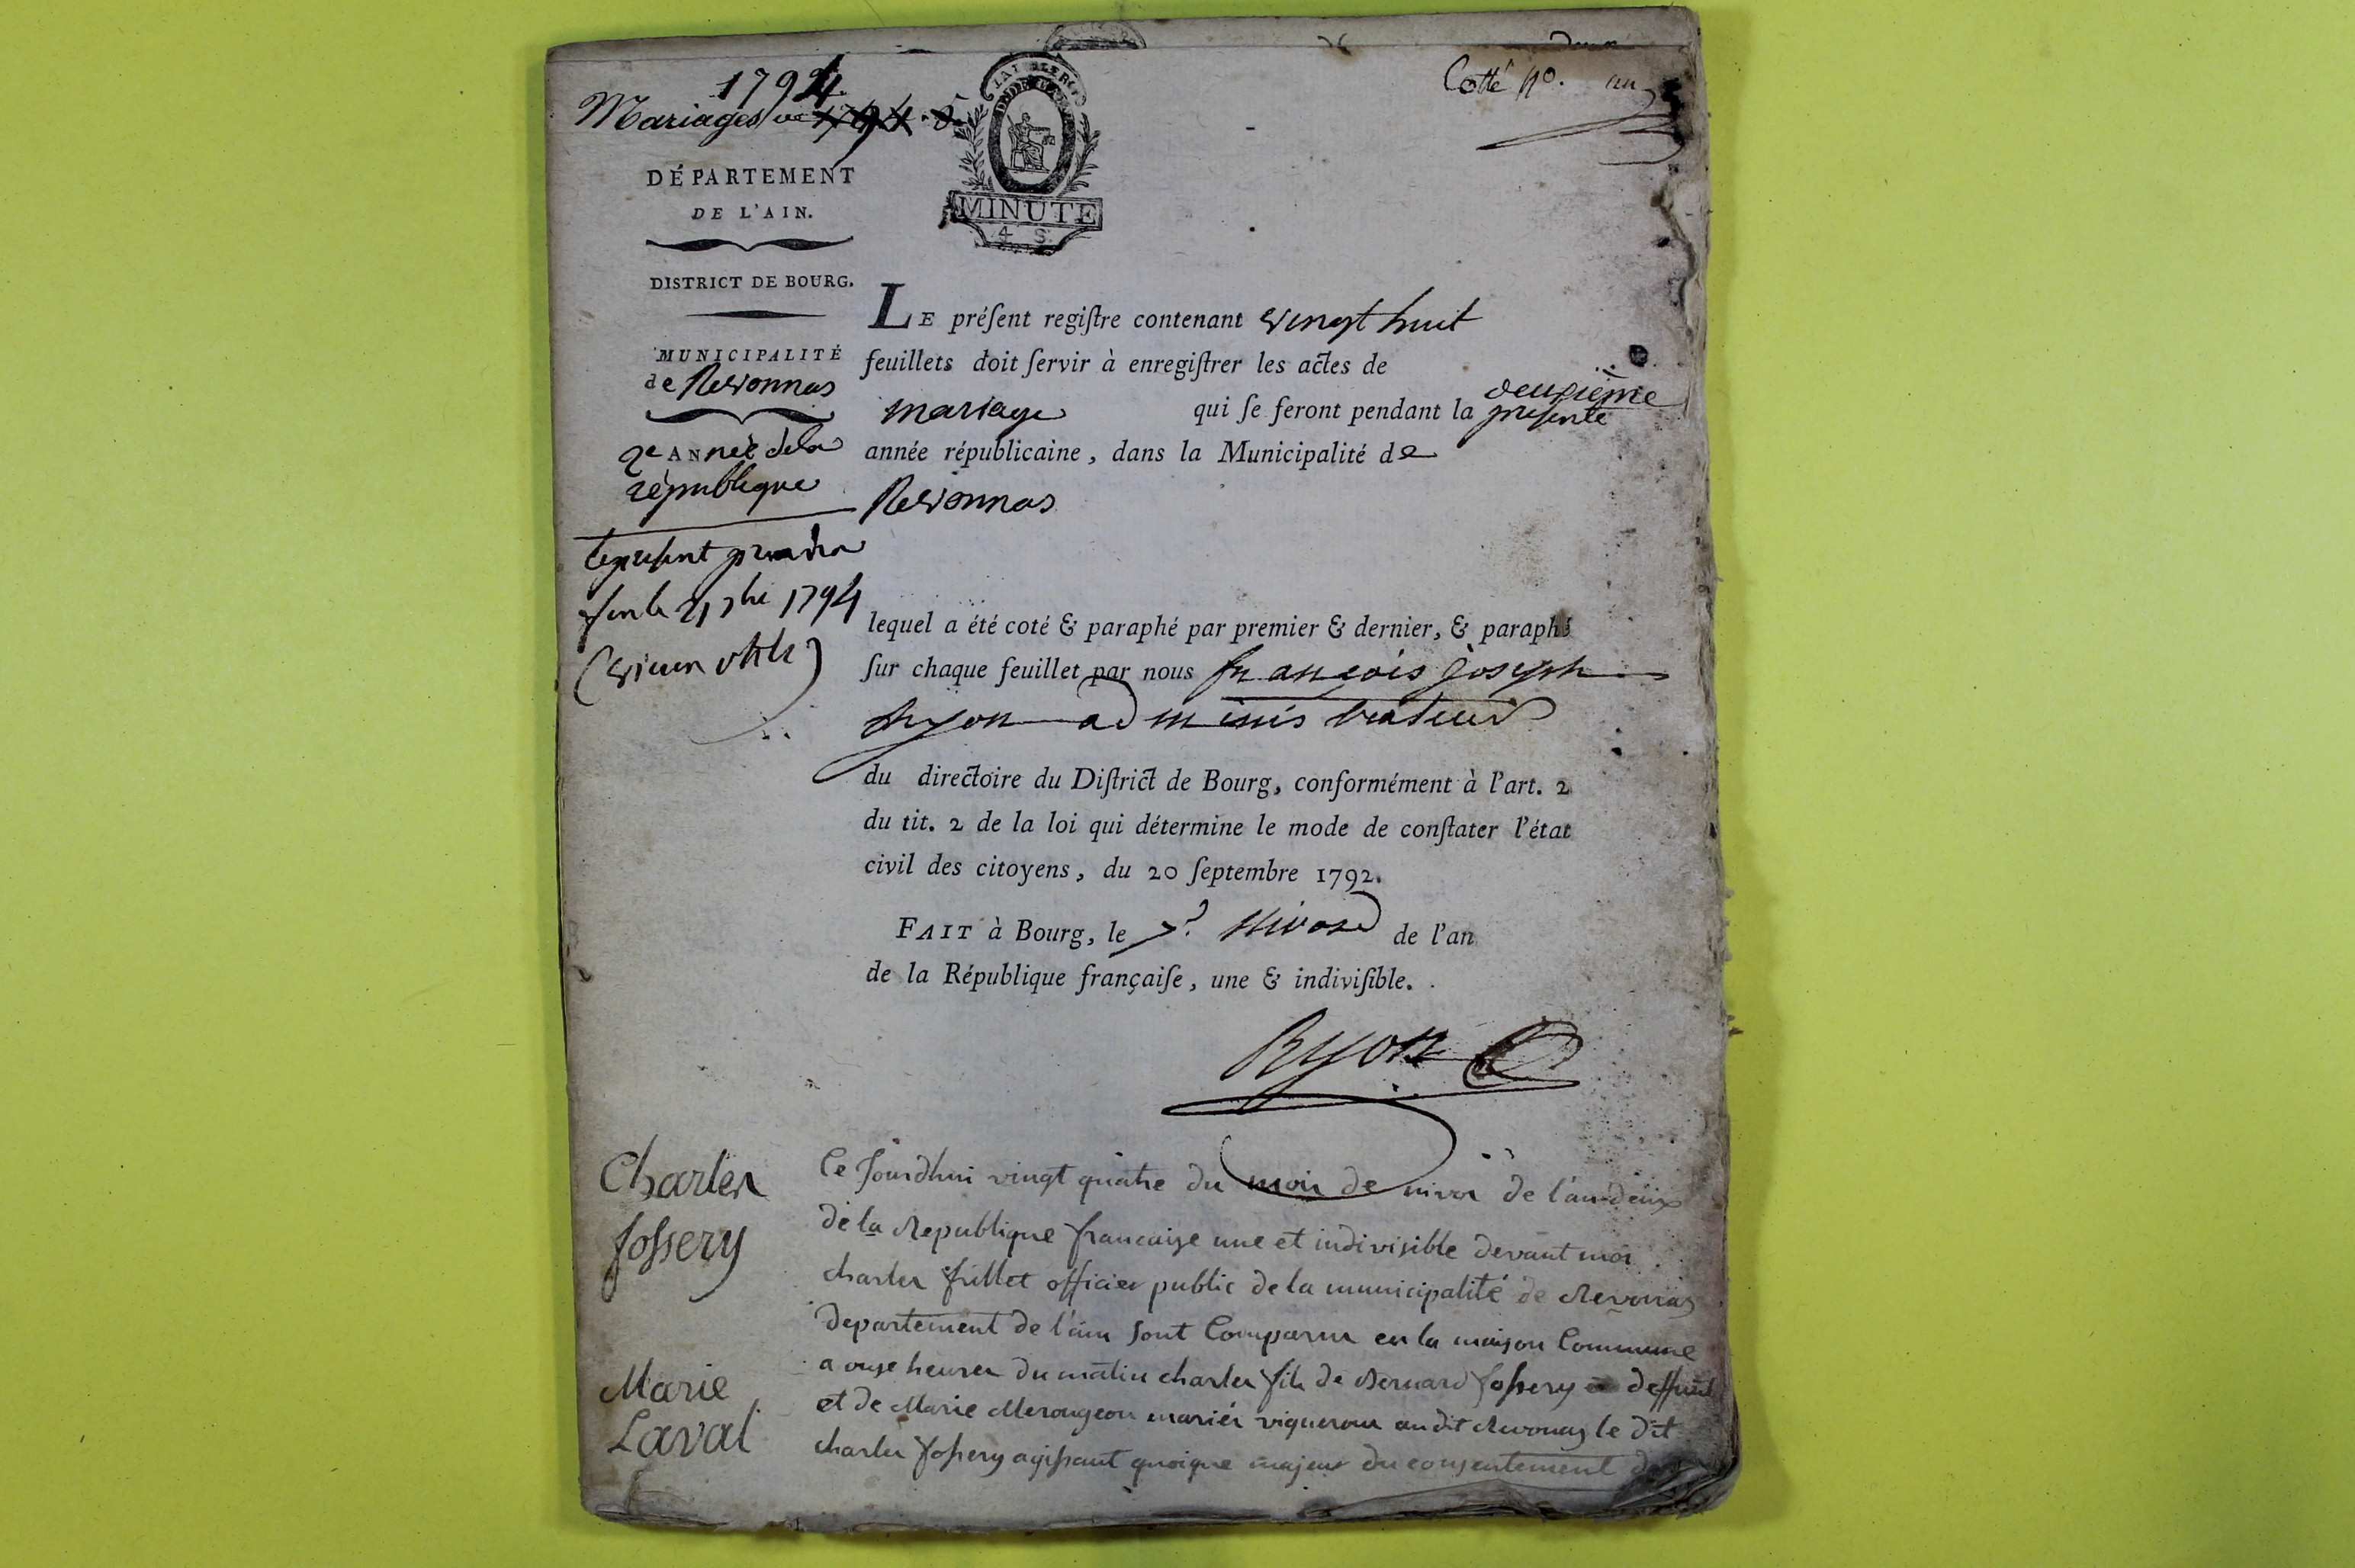 1794.
Mariages
Cotté No. un
DÉPARTEMENT
DE L'AIN.
MINUTE
4 S.
DISTRICT DE BOURG.
MUNICIPALITÉ
de Revonnas
2e ANnée dela
république
le present prendra
fin le 21 7bre 1794
(vieux stile)
LE préſent regiſtre contenant vingt huit
feuillets doit ſervir à enregiſtrer les actes de
mariage qui ſe feront pendant la presente deuxième
année républicaine, dans la Municipalité de
Revonnas
lequel a été coté & paraphé par premier & dernier, & paraphé
ſur chaque feuillet par nous françois joseph
ryon administrateur
du directoire du Diſtrict de Bourg, conformément à l'art. 2
du tit. 2 de la loi qui détermine le mode de conſtater l'état
civil des citoyens, du 20 ſeptembre 1792.
FAIT à Bourg, le nivose de l'an
de la République françaiſe, une & indiviſible.
Ryon
Charles
fossery
Marie
Laval
Ce Jourdhui vingt quatre du mois de nivos de l'an deux
de la Republique francaize une et indivisible devant moi
charles frillet officier public de la municipalité de Revonas
Departement de l'ain sont Comparus en la maison Commune
a onze heures du matin charles fils de Bernard fossery deffunt
et de Marie Merougeon mariés vignerons audit Revonas le dit
charles fossery agissant quoique majeur du consentement